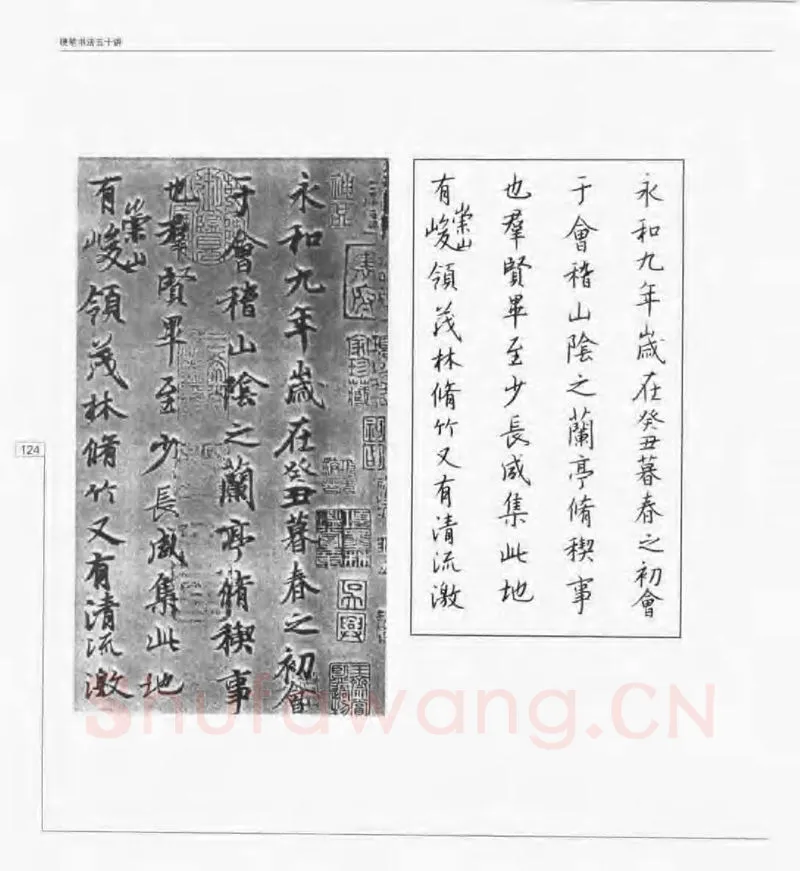 硬笔书法五十讲
永和九年歲在癸丑暮春之初會
于會稽山陰之蘭亭脩稧事
也羣賢畢至少長咸集此地
有崇山峻領茂林脩竹又有清流激
永和九年歲在癸丑暮春之初會
于會稽山陰之蘭亭脩稧事
也羣賢畢至少長咸集此地
有崇山峻領茂林脩竹又有清流激
124
Shufawang.CN